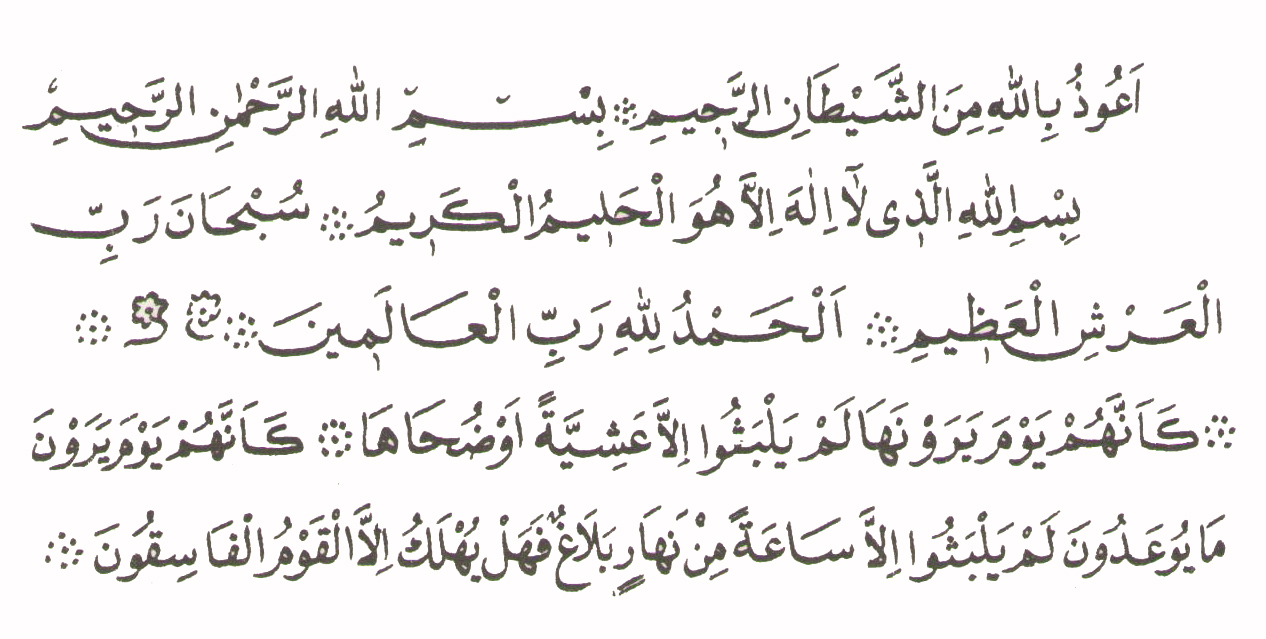 اَعُوذُ بِاللّٰهِ مِنَ الشَّيْطَانِ الرَّجِيمِ ۞ بِسْمِ اللّٰهِ الرَّحْمٰنِ الرَّحِيمِ
بِسْمِ اللّٰهِ الَّذِى لَٓا اِلٰهَ اِلَّا هُوَ الْحَلِيمُ الْكَرِيمُ ۞ سُبْحَانَ رَبِّ
الْعَرْشِ الْعَظِيمِ ۞ اَلْحَمْدُ لِلّٰهِ رَبِّ الْعَالَمِينَ ۞ ۞
۞ كَاَنَّهُمْ يَوْمَ يَرَوْنَهَا لَمْ يَلْبَثُوا اِلَّا عَشِيَّةً اَوْ ضُحَاهَا ۞ كَاَنَّهُمْ يَوْمَ يَرَوْنَ
مَا يُوعَدُونَ لَمْ يَلْبَثُوا اِلَّا سَاعَةً مِنْ نَهَارٍ بَلَاغٌ فَهَلْ يُهْلَكُ اِلَّا الْقَوْمُ الْفَاسِقُونَ ۞